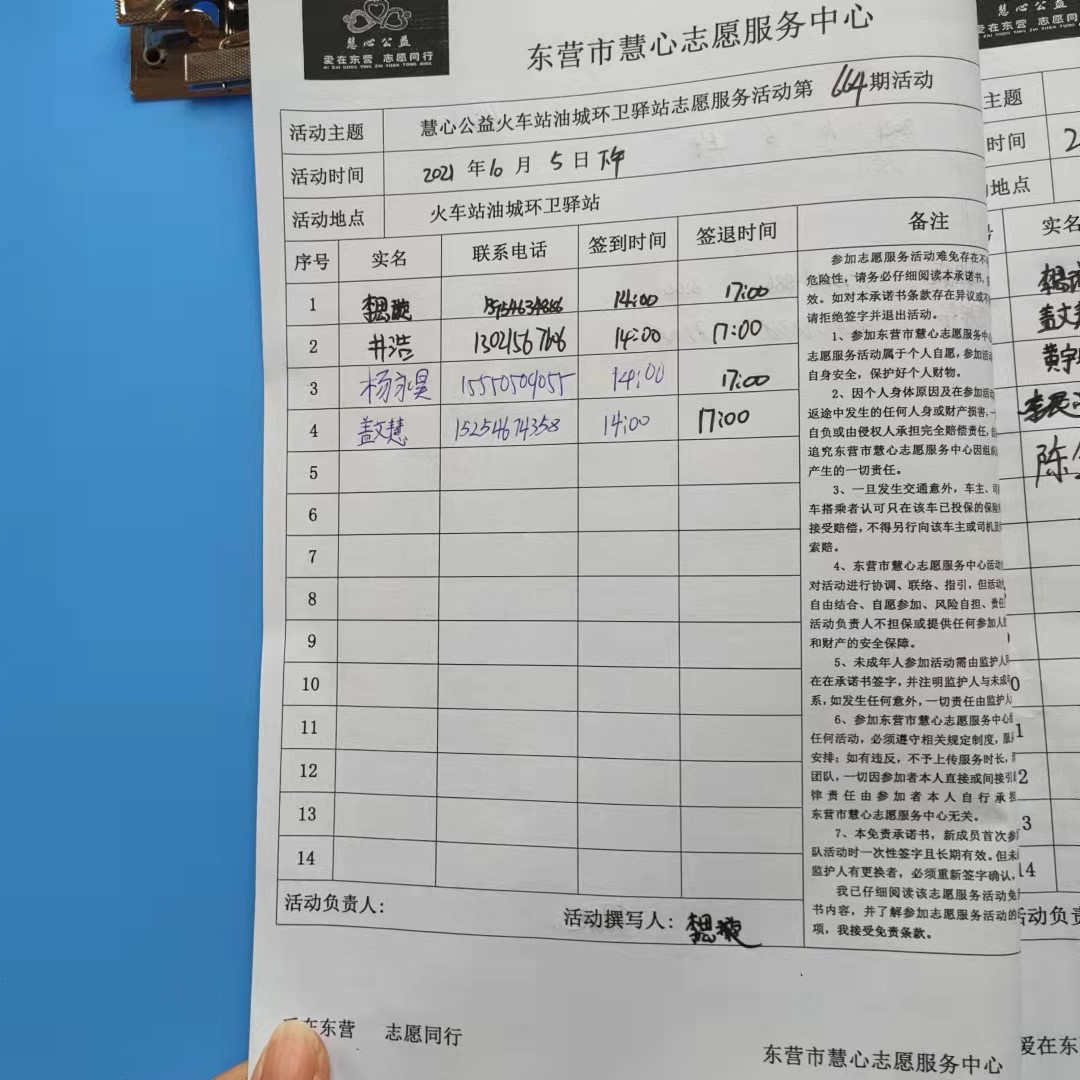 慧心公益
爱在东营 志愿同行
AI ZAI DONG YING ZHI YUAN TONG XING
东营市慧心志愿服务中心
活动主题 慧心公益火车站油城环卫驿站志愿服务活动第664期活动
活动时间 2021年10月5日下午
活动地点 火车站油城环卫驿站
序号 实名 联系电话 签到时间 签退时间 备注
1 14:00 17:00
2 井浩 14:00 17:00
3 杨永昊 15550509055 14:00 17:00
4 盖文慧 15254674358 14:00 17:00
5
6
7
8
9
10
11
12
13
14
参加志愿服务活动难免存在不
危险性，请务必仔细阅读本承诺书，
效。如对本承诺书条款存在异议或不
请拒绝签字并退出活动。
1、参加东营市慧心志愿服务中心
志愿服务活动属于个人自愿，参加活动
自身安全，保护好个人财物。
2、因个人身体原因及在参加活动
返途中发生的任何人身或财产损害，一
自负或由侵权人承担完全赔偿责任，
追究东营市慧心志愿服务中心因组织
产生的一切责任。
3、一旦发生交通意外，车主、司
车搭乘者认可只在该车已投保的保险
接受赔偿，不得另行向该车主或司机
索赔。
4、东营市慧心志愿服务中心活动
对活动进行协调、联络、指引，但活动
自由结合、自愿参加、风险自担、责任
活动负责人不担保或提供任何参加人
和财产的安全保障。
5、未成年人参加活动需由监护人
在在承诺书签字，并注明监护人与未成
系，如发生任何意外，一切责任由监护人
6、参加东营市慧心志愿服务中心
任何活动，必须遵守相关规定制度，服
安排；如有违反，不予上传服务时长，
团队，一切因参加者本人直接或间接引
律责任由参加者本人自行承担
东营市慧心志愿服务中心无关。
7、本免责承诺书，新成员首次参
队活动时一次性签字且长期有效。但未
监护人有更换者，必须重新签字确认，
我已仔细阅读该志愿服务活动免
书内容，并了解参加志愿服务活动的
项，我接受免责条款。
活动负责人： 活动撰写人：
在东营 志愿同行
东营市慧心志愿服务中心
慧心公益
爱在东营 志愿同行
主题
时间 2
地点
实名
盖文
黄宇
陈
0
1
2
3
14
活动负责
爱在东